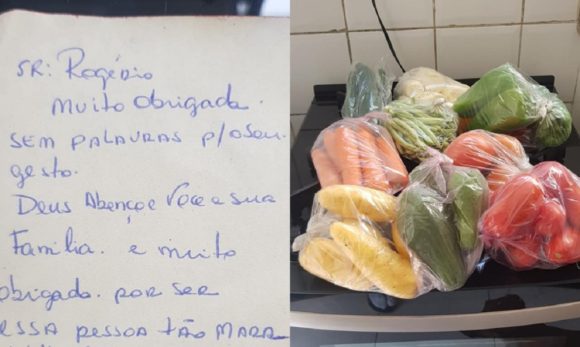 SR: Rogério
muito obrigada.
SEM PALAVRAS P/O SEU
gesto.
Deus Abençoe Você e sua
Família. e muito
obrigada. por ser
ESSA PESSOA TÃO MARA